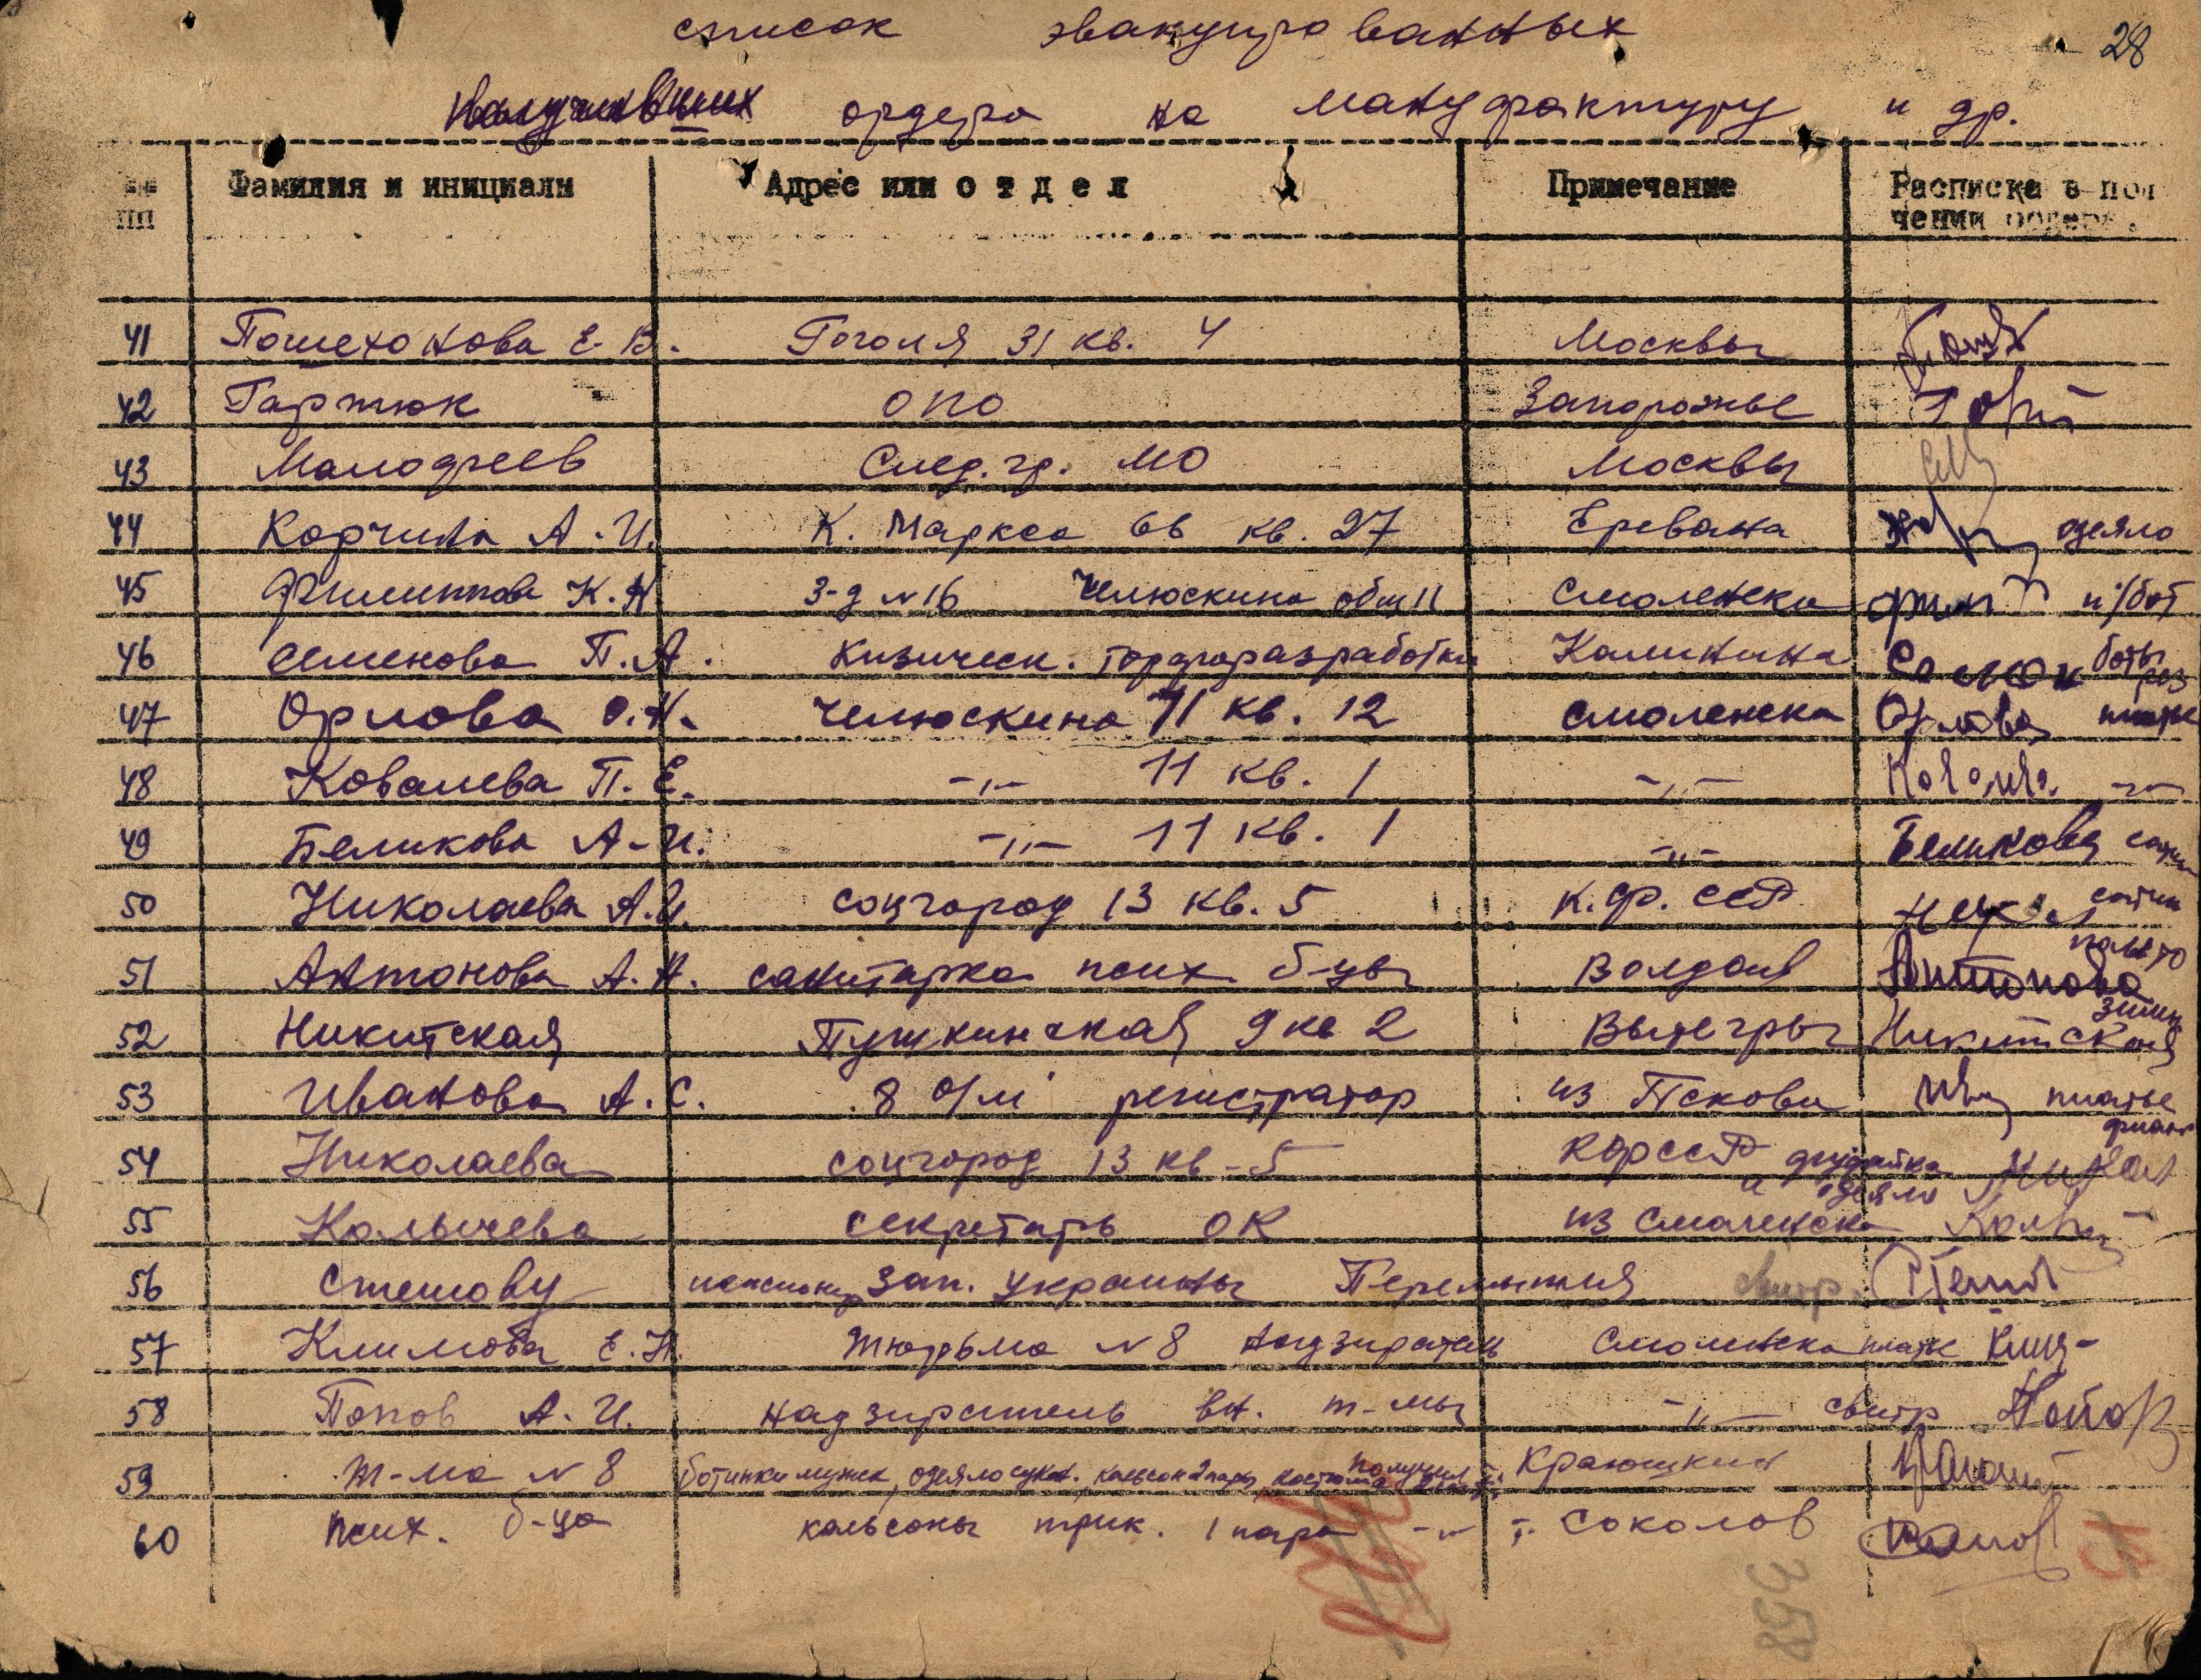 список эвакуированных
28
получивших ордера на мануфактуру и др.
№№ Фамилия и инициалы Адрес или о т д е л Примечание Расписка в пол
пп чении ордера.
41 Пошехонова Е. В. Гоголя 31 кв. 4 Москвы Пошех
42 Гартюк ОПО Запорожье
43 Малофеев След. гр. МО Москвы
44 Корчина А. И. К. Маркса 66 кв. 27 Еревана одеяло
45 Филиппова К. Н. З-д №16 Челюскина общ 11 Смоленска Фили п/бот
46 Семенова П. А. Кизическ. торфоразработки Калинина Семен боты рез
47 Орлова О. Н. Челюскина 11 кв. 12 Смоленска Орлова платье
48 Ковалева П. Е. -"- 11 кв. 1 -"- -"-
49 Беликова А. И. -"- 11 кв. 1 -"- Беликова сатин
50 Николаева А. И. соцгород 13 кв. 5 К. Ф. ССР сатин
51 Антонова А. Н. санитарка псих б-цы Волдаив Антонова пальто
52 Никитская Пушкинская 9 кв 2 Вытегры Никитская зимн
53 Иванова А. С. 8 о/м регистратор из Пскова Ив платье
54 Николаева соцгород 13 кв - 5 КФССР фуфайка и одеяло Никол флан
55 Колычева секретарь ОК из Смоленска
56 Стешову пенсионер зап. Украины Перемышля свитр. Стеш
57 Климова Е. Н. Тюрьма №8 надзиратель Смоленска платье Клим-
58 Попов А. И. надзиратель вн. т-мы -"- свитр Попов
59 Т-ма №8 ботинки мужск, одеяло сукн. кальсон 2 пары, получил Краюшкин
60 псих. б-ца кальсоны трик. 1 пара -"- т. Соколов
358